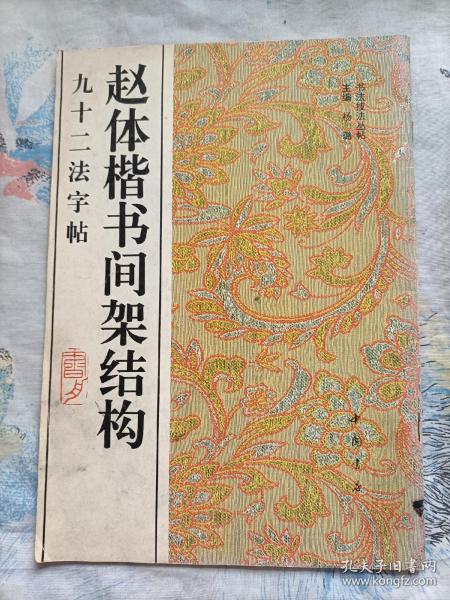 赵体楷书间架结构
九十二法字帖
书法技法丛帖
主编 杨璐
中国书店
孔夫子旧书网
www.kongfz.com